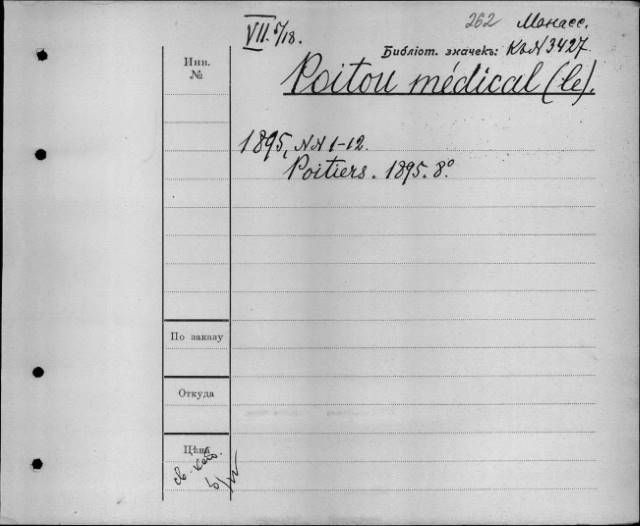 262 Монасс.
VII. 5/18.
Библіот. значекъ: Къ N 3427
Инв.
№
Poitou médical (le).
1895, NN 1-12.
Poitiers. 1895. 8°.
По заказу
Откуда
Цѣна